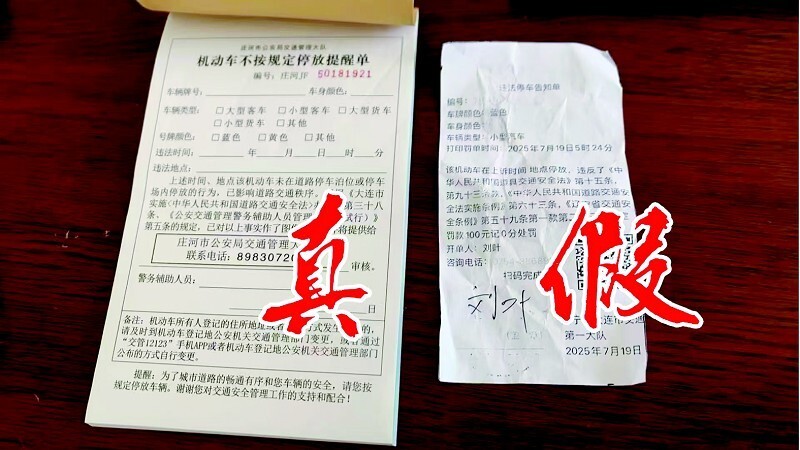 庄河市公安局交通管理大队
机动车不按规定停放提醒单
编号：庄河JF 50181921
车辆牌号： 车身颜色：
车辆类型： □大型客车 □小型客车 □大型货车
□小型货车 □其他
号牌颜色： □蓝色 □黄色 □其他
违法时间： 年 月 日 时 分
违法地点：
上述时间、地点该机动车未在道路停车泊位或停车
场内停放的行为，已影响道路交通秩序。《大连市
实施〈中华人民共和国道路交通安全法〉 第三十八
条、《公安交通管理警务辅助人员管理 试行）》
第五条的规定，已对以上事实作了图 将提供给
庄河市公安局交通管理
联系电话：8983072 审核。
警务辅助人员：
日
备注：机动车所有人登记的住所地址或者 方式发生 的，
请及时到机动车登记地公安机关交通管理部门变更，或者通过
“交管12123”手机APP或者机动车登记地公安机关交通管理部门
公布的方式自行变更。
提醒：为了城市道路的畅通有序和您车辆的安全，请您按
规定停放车辆。谢谢您对交通安全管理工作的支持和配合！
真
违法停车告知单
编号：
车牌颜色：蓝色
车身颜色：
车辆类型：小型汽车
打印罚单时间：2025年7月19日5时24分
该机动车在上诉时间 地点停放，违反了《中
华人民共和国道具交通安全法》第十五条、
第九十三条、《中华人民共和国道路交通安
全法实施条例》第六十三条，《辽宁省交通安
全条例》第五十九条第一款第二
罚款100元记0分处罚
开单人：刘叶
咨询电话：
扫码完成
刘叶
连市交通
第一大队
2025年7月19日
假